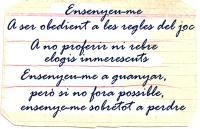 Ensenyeu-me
A ser obedient a les regles del joc
A no proferir ni rebre
elogis immerescuts
Ensenyeu-me a guanyar,
però si no fora possible,
ensenye-me sobretot a perdre